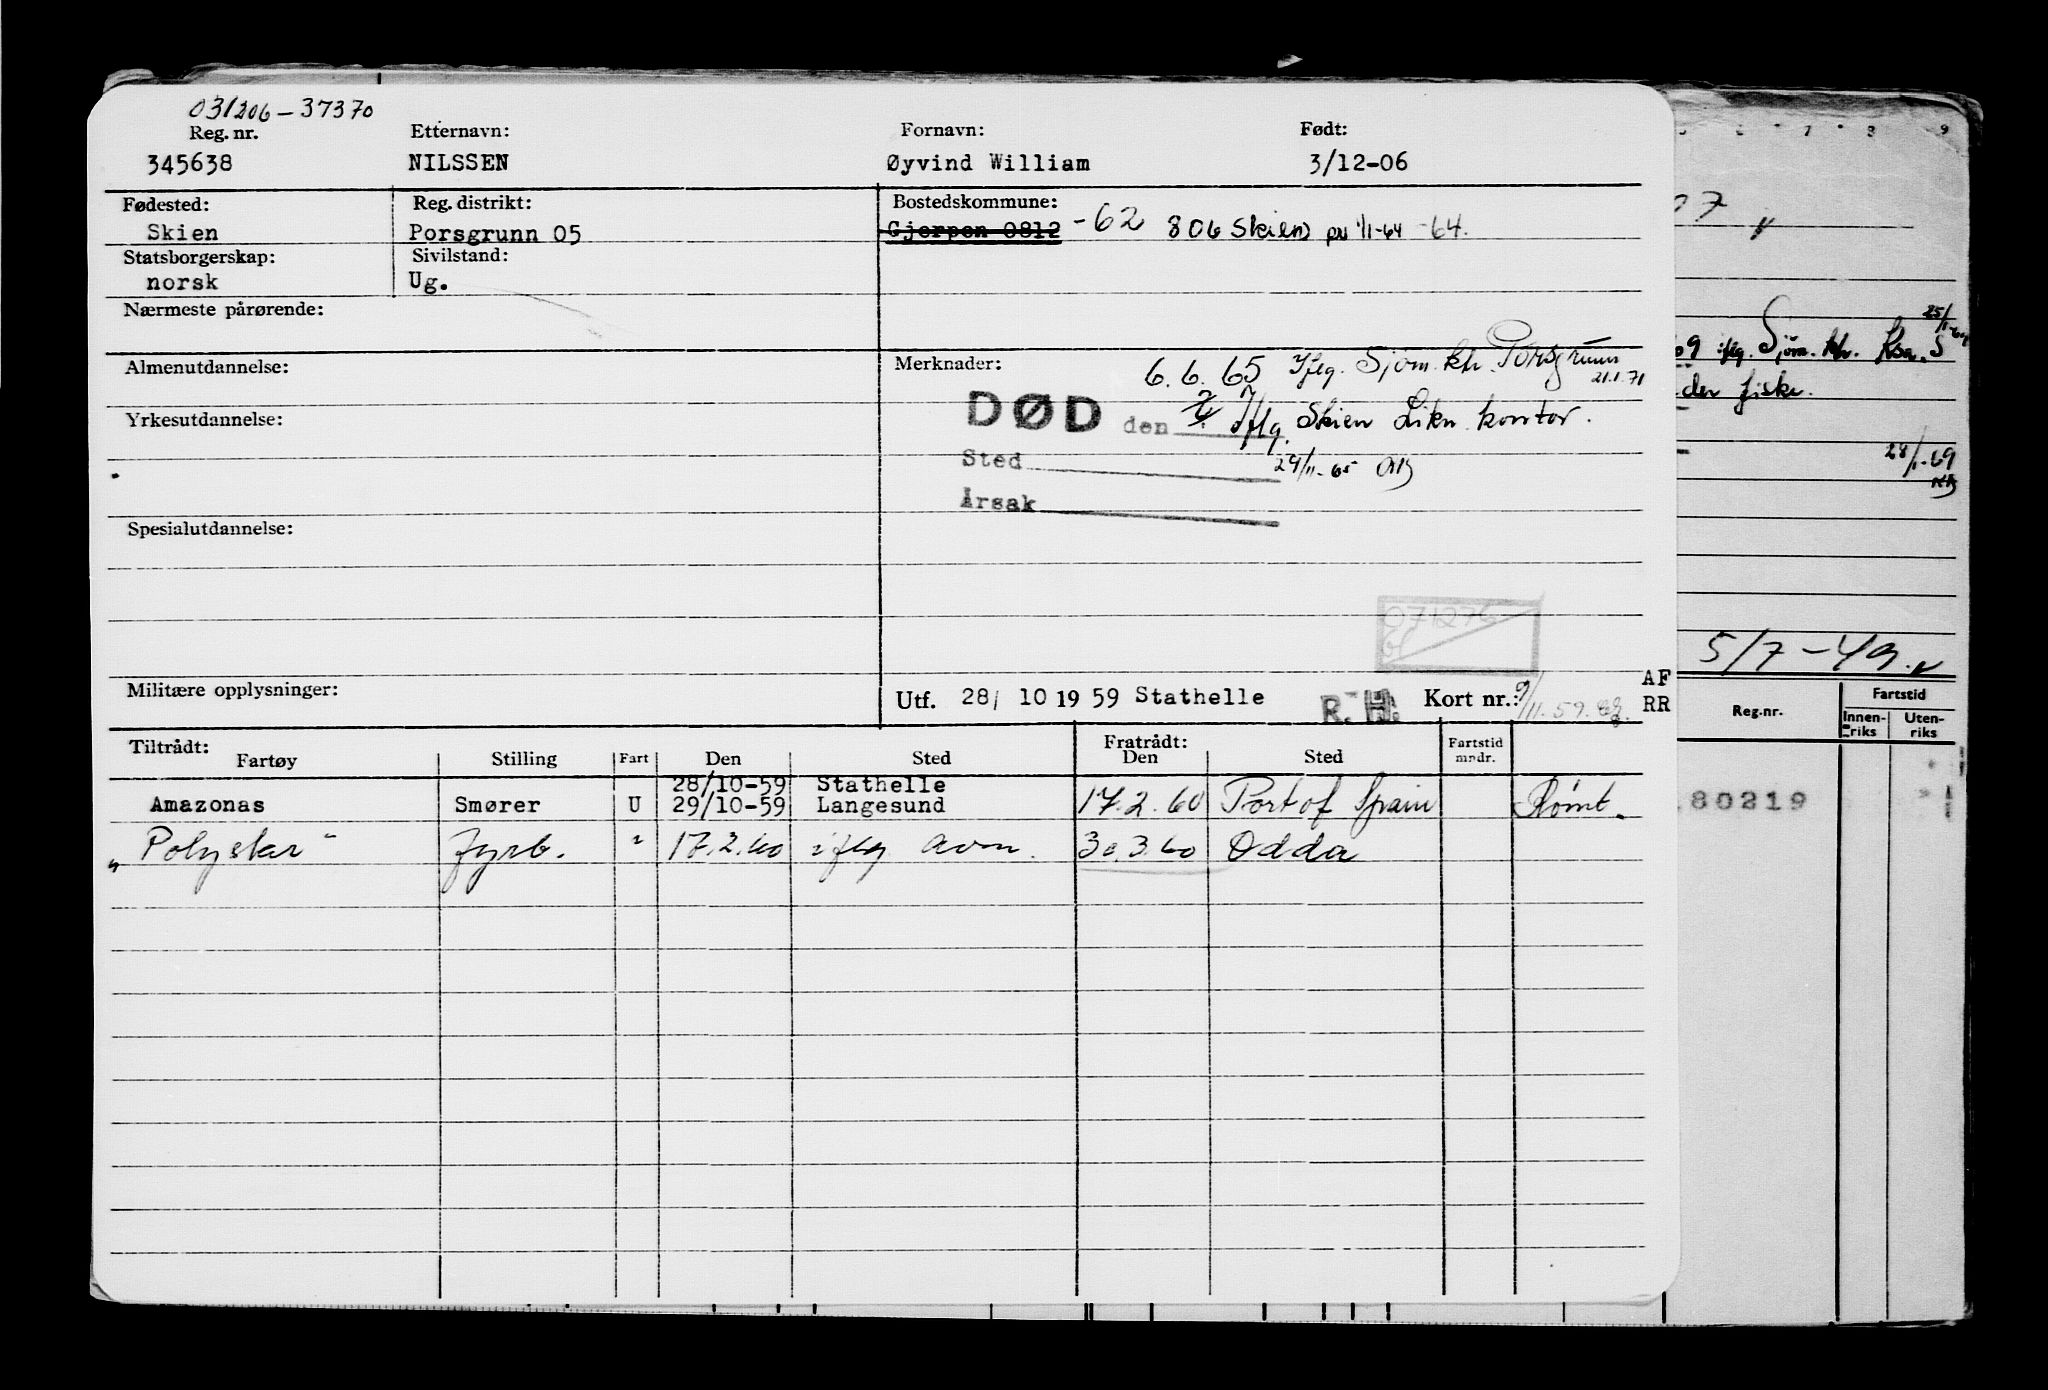 031206-37370
Reg. nr. Etternavn: Fornavn: Født:
345638 NILSSEN Øyvind William 3/12-06
Fødested: Reg. distrikt: Bostedskommune:
Skien Porsgrunn 05 Gjerpen 0812 -62 806 Skien pr 1/1-64 -64.
Statsborgerskap: Sivilstand:
norsk Ug.
Nærmeste pårørende:
Almenutdannelse: Merknader: 6.6.65 Iflg. Sjøm.ktr. Porsgrunn
21.1.71
Yrkesutdannelse: DØD den Iflg. Skien Likn. kontor.
Sted 24/11-65
Årsak
Spesialutdannelse:
071276
Militære opplysninger: Utf. 28/ 10 19 59 Stathelle R. H. Kort nr.: 9/11.59.
AF
RR
Tiltrådt: Fratrådt:
Fartøy Stilling Fart Den Sted Den Sted Fartstid mndr.
28/10-59 Stathelle
Amazonas Smører U 29/10-59 Langesund 17.2.60 Port of Spain Rømt.
"Polystar" fyrb. " 17.2.60 iflg. 30.3.60 Odda
7 8 9
07
25/1-69
69 iflg. Sjøm. ktr. Krsa. S
der fiske.
28/1-69
5/7-49.
Reg.nr. Fartstid
Innen-riks Uten-riks
180219